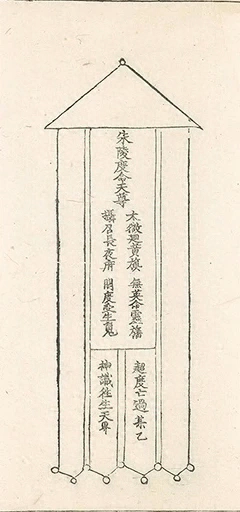 朱陵度命天尊
太微迴黃旗 無英命靈旛
攝召長夜府 開度受生魂
超度亡過某乙
神識徃生天界